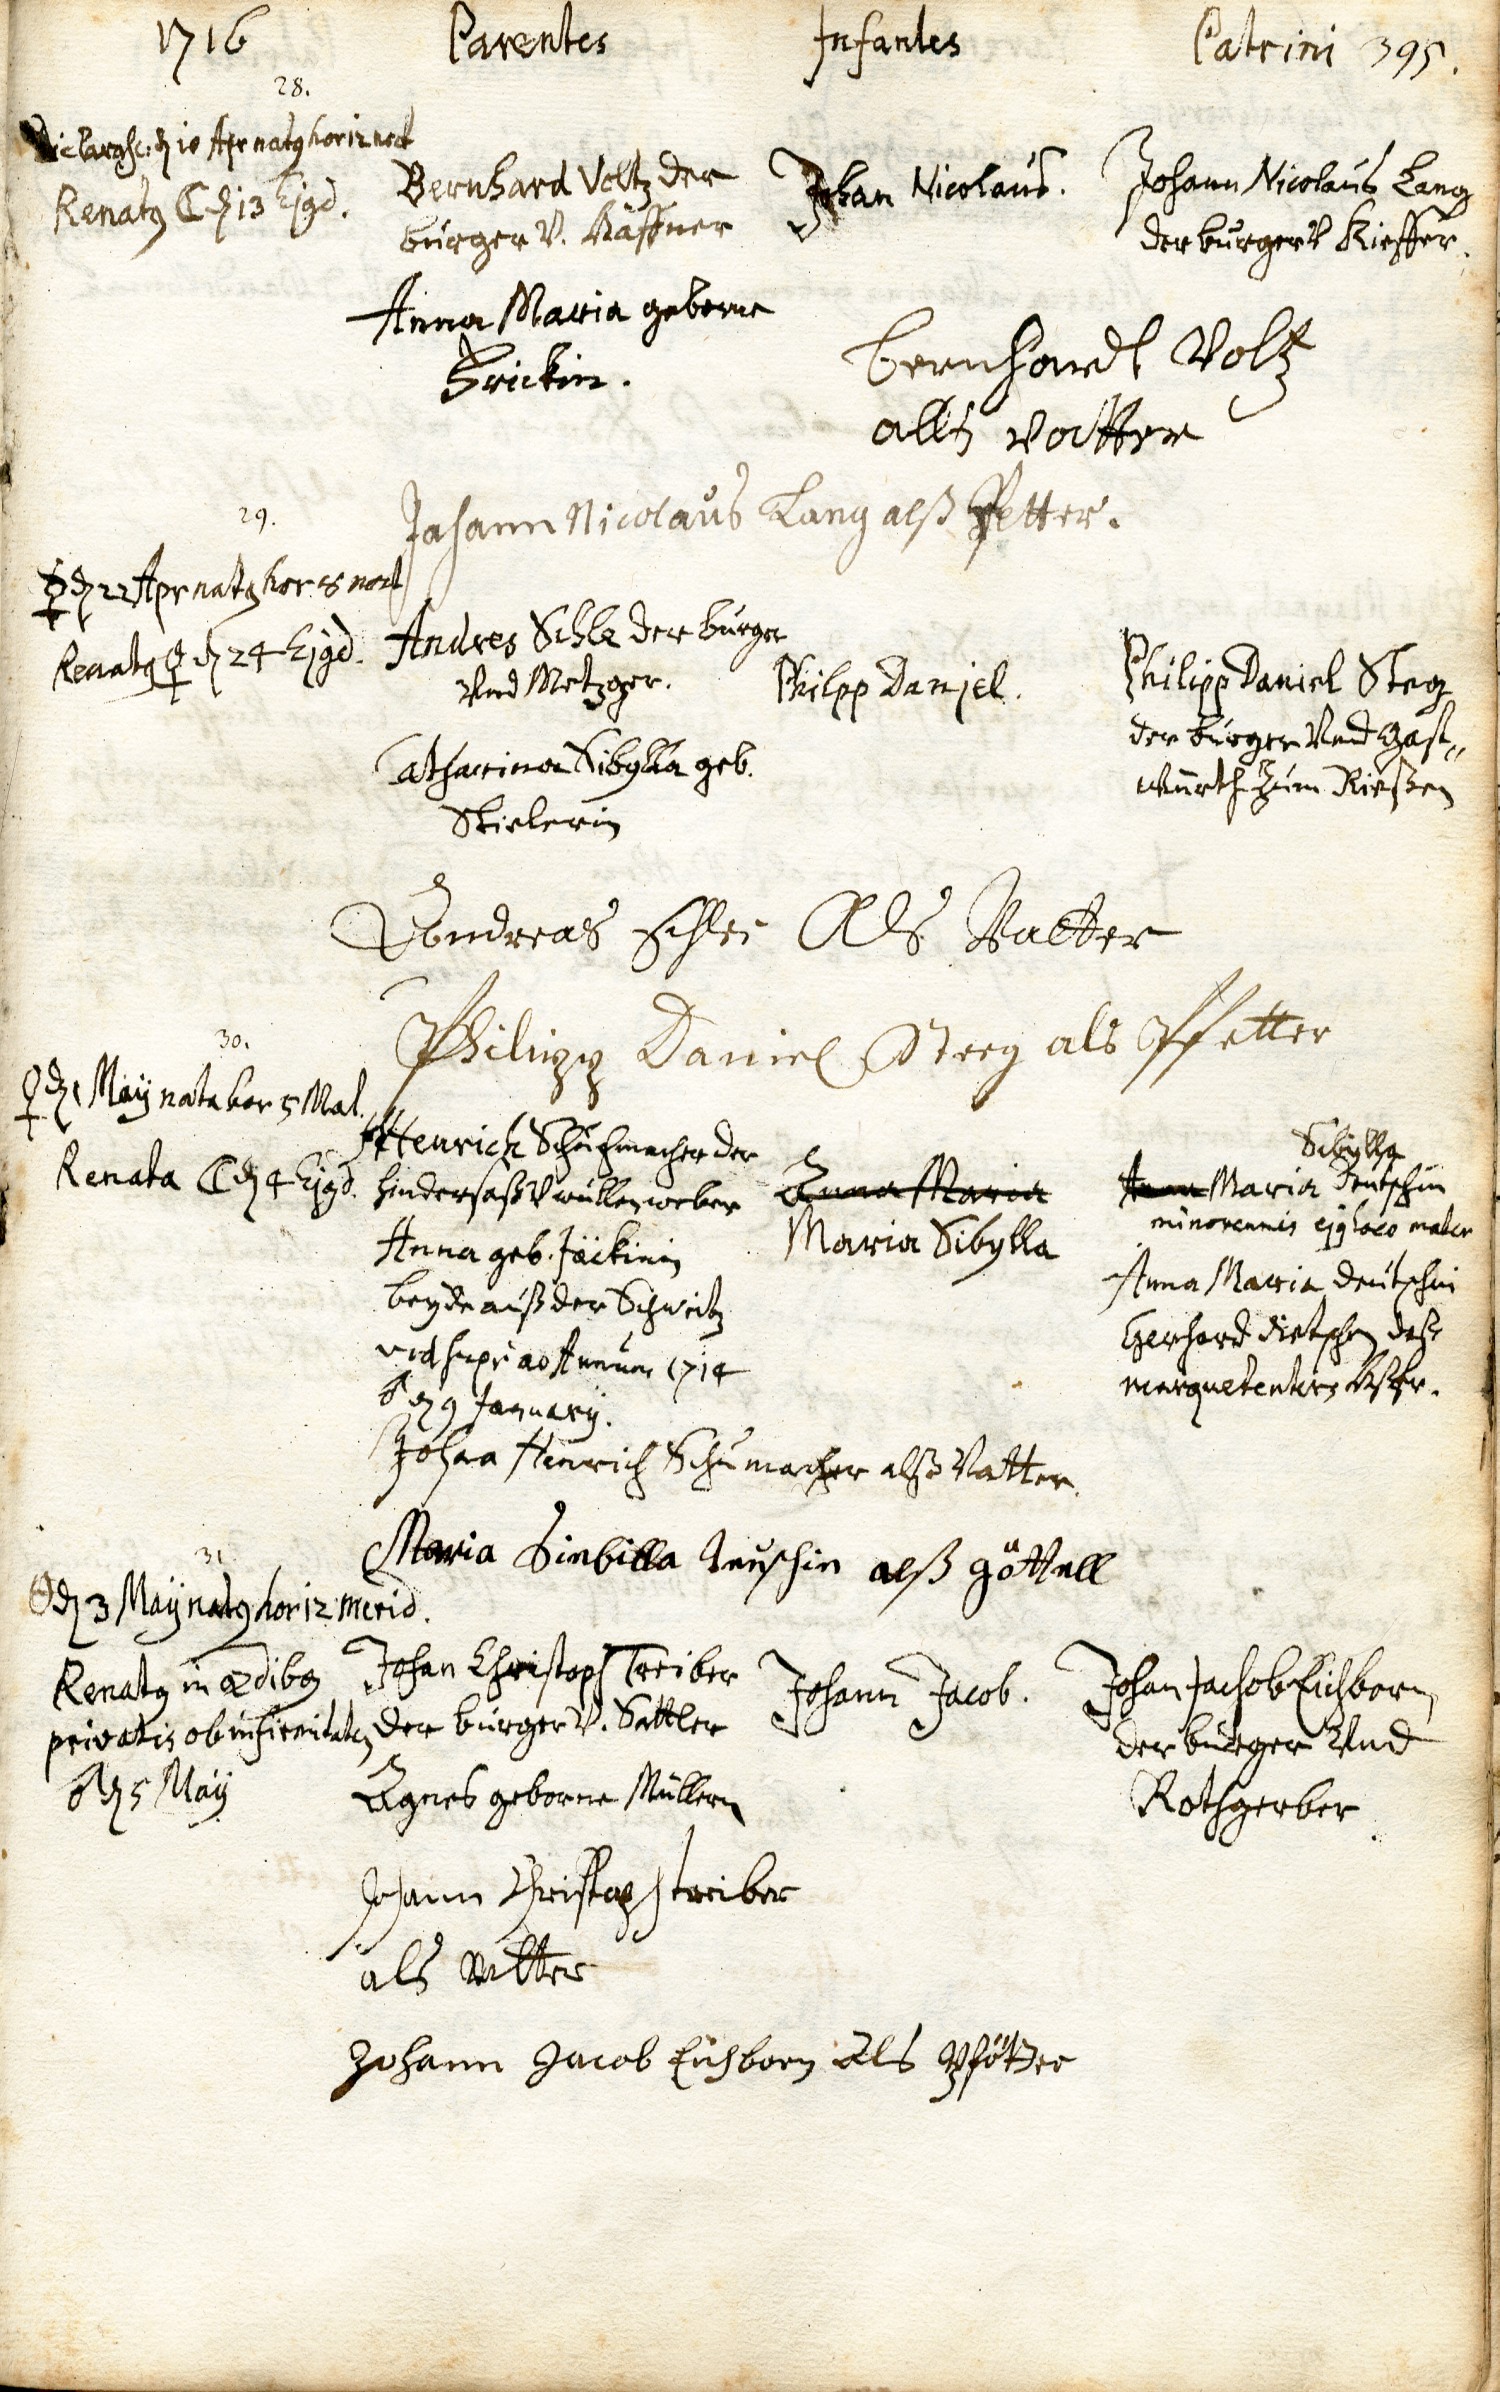 1716 Parentes Infantes Patrini 395.
28.
d. 10 Apr natg hor 12 noct
Renatg ☾ d. 13 Ejgd.
Bernhard Voltz der
burger V. Haffner
Anna Maria geborne
Frickin.
Johan Nicolaus.
Johann Nicolaus Lang
der burger V Kieffer.
bernhardt Voltz
allß vatter
Johann Nicolaus Lang alß Pfetter.
29.
☿ d. 22 Apr natg hor 8 noct
Renatg ♀ d. 24 Ejgd.
Andres Schle der burger
Vnd Metzger.
Catharina Sibylla geb.
Stielerin
Philpp Daniel.
Philipp Daniel Steg
der burger Vnd Gast„
würth zum Rießen
Andreas Schle Als Vatter
Philipp Daniel Steeg als Pfetter
30.
♀ d. 1 Maÿ nata hor 5 Mat.
Renata ☾ d. 4 Ejgd.
Henrich Schuhmacher der
hindersaß V wüllenweber
Anna geb. Jäckinin
beyde auß der Schweitz
vid supr ad Annum 1714
♂ d. 9 January.
Anna Maria
Maria Sibylla
Sibylla
Anna Maria Teutschin
minorennis ejg loco mater
Anna Maria deutschin
Gerhard dietschen deß
marquetenters
Johan Henrich Schumacher alß Vatter.
Maria Sinbilla teuschin alß göttell
31
☉ d. 3 Maÿ natg hor 12 merid.
Renatg in ædibg
privatis ob infirmitatem
♂ d. 5 Maÿ
Johan Christoph Treiber
der burger V. Sattler
Agnes geborne Müllern
Johann Jacob.
Johan Jachob Eichborn
der burger Vnd
Rothgerber
Johann Christoph treiber
als Vatter
Johann Jacob Eichborn Als Pfötter